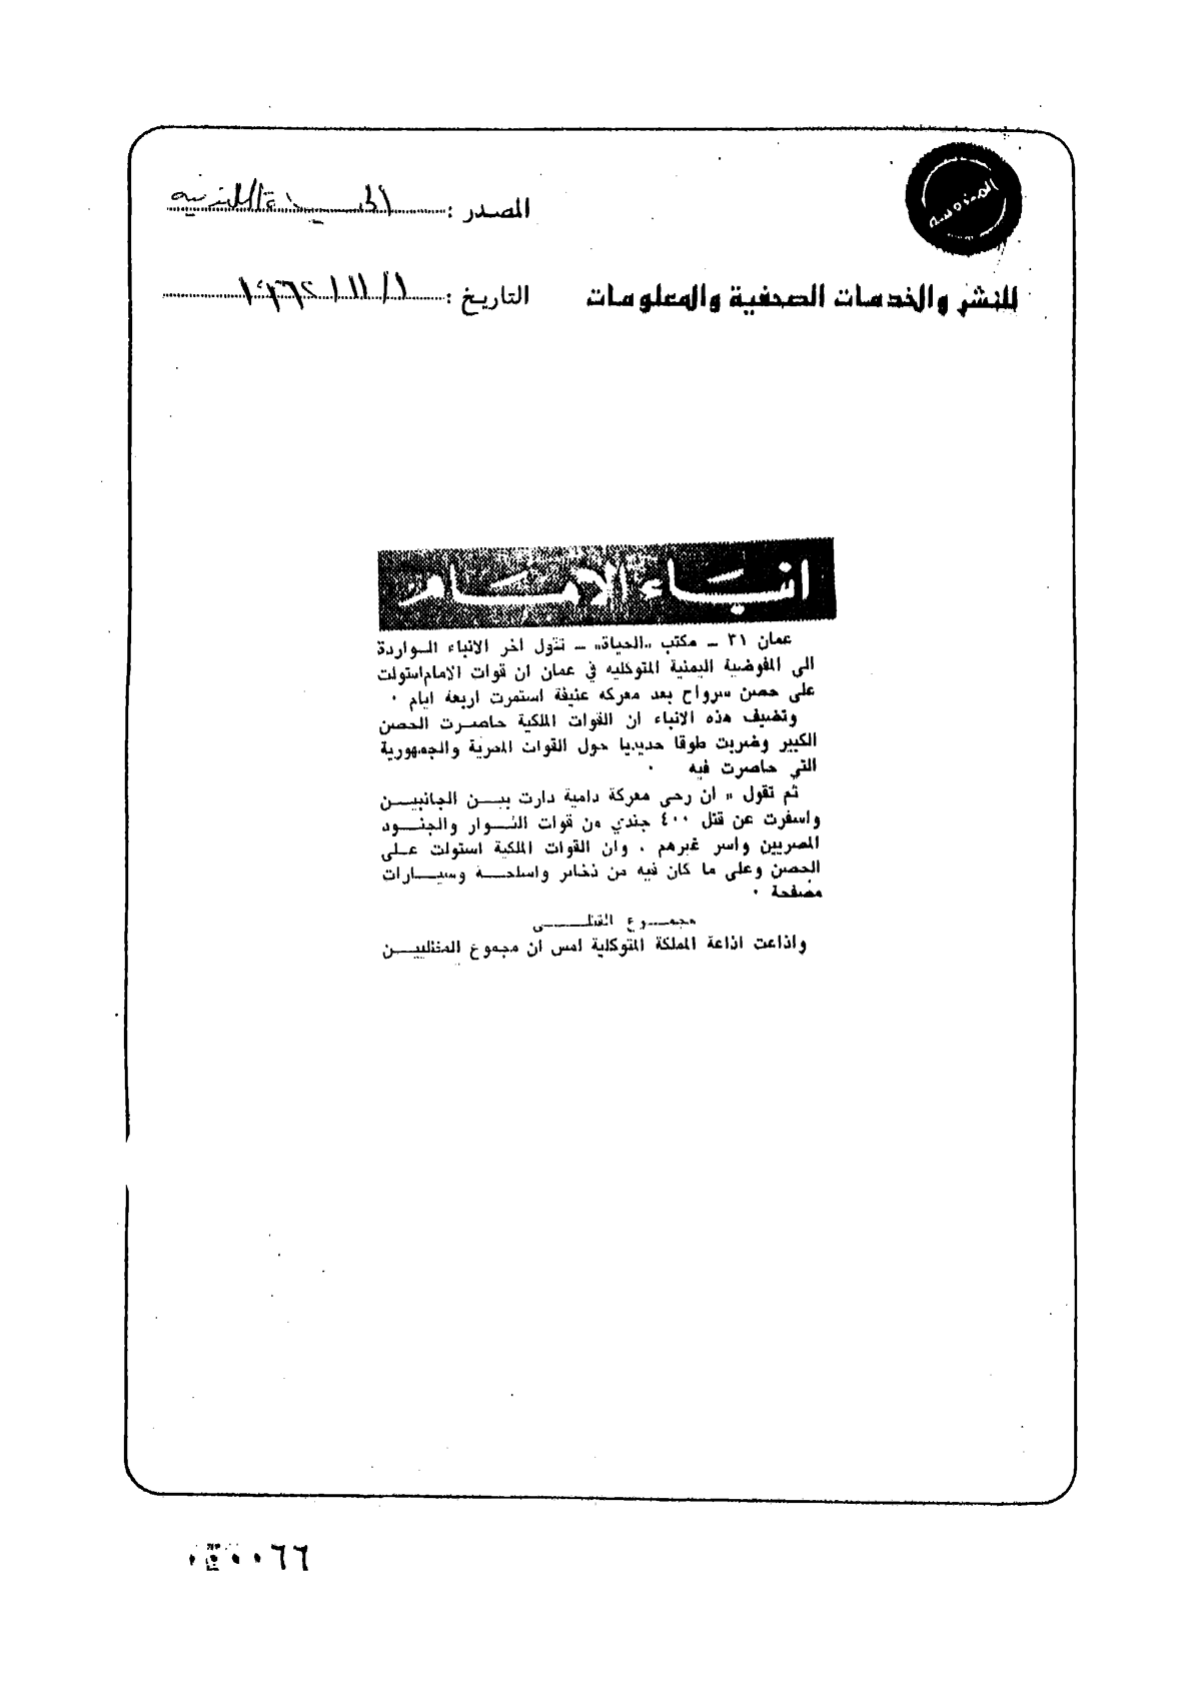 المصدر : الحياة اللندنية
التاريخ : ١٩٦٢/١١/١
للنشر والخدمات الصحفية والمعلومات
انباء الامام
عمان ٣١ ــ مكتب «الحياة» ــ تقول اخر الانباء الواردة
الى المفوضية اليمنية المتوكليه في عمان ان قوات الامام استولت
على حصن سرواح بعد معركه عنيفة استمرت اربعة ايام ٠
وتضيف هذه الانباء ان القوات الملكية حاصرت الحصن
الكبير وضربت طوقا حديديا حول القوات المصرية والجمهورية
التي حاصرت فيه ٠
ثم تقول « ان رحى معركة دامية دارت بين الجانبين
واسفرت عن قتل ٤٠٠ جندي من قوات الثوار والجنود
المصريين واسر غيرهم . وان القوات الملكية استولت على
الحصن وعلى ما كان فيه من ذخائر واسلحة وسيارات
مصفحة ٠
مجموع القتلى
واذاعت اذاعة المملكة المتوكلية امس ان مجموع المقتلين